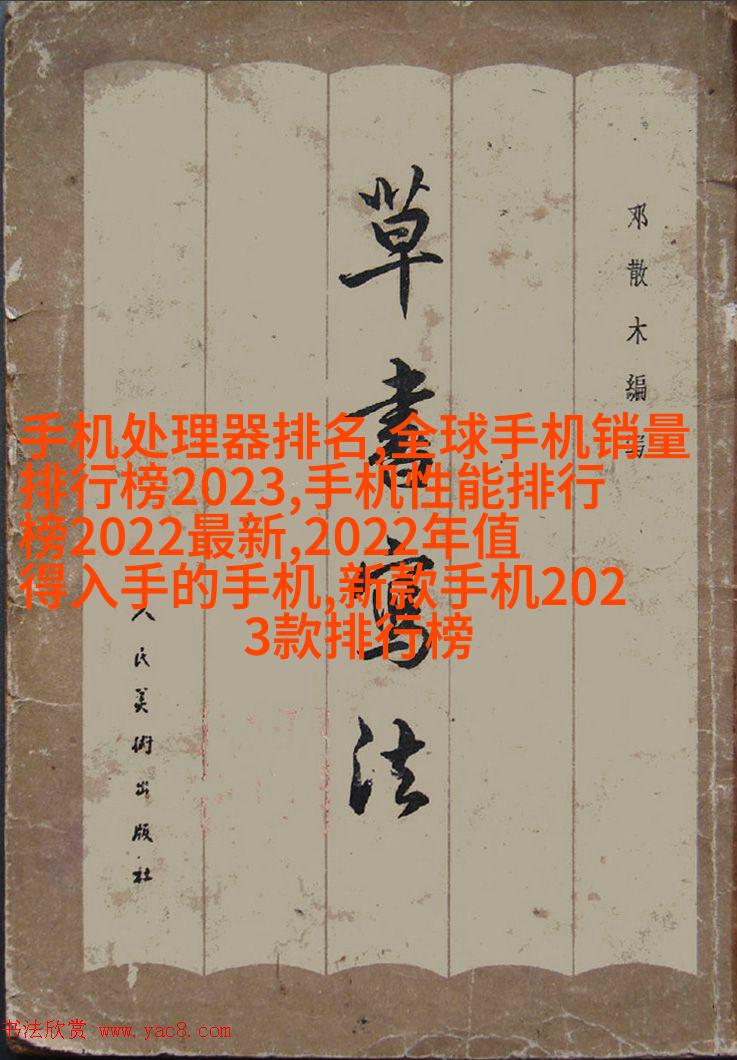 草書寫法
邓散木編寫
人民美術出版社
手机处理器排名,全球手机销量
排行榜2023,手机性能排行
榜2022最新,2022年值
得入手的手机,新款手机202
3款排行榜
书法欣赏 www.yac8.com